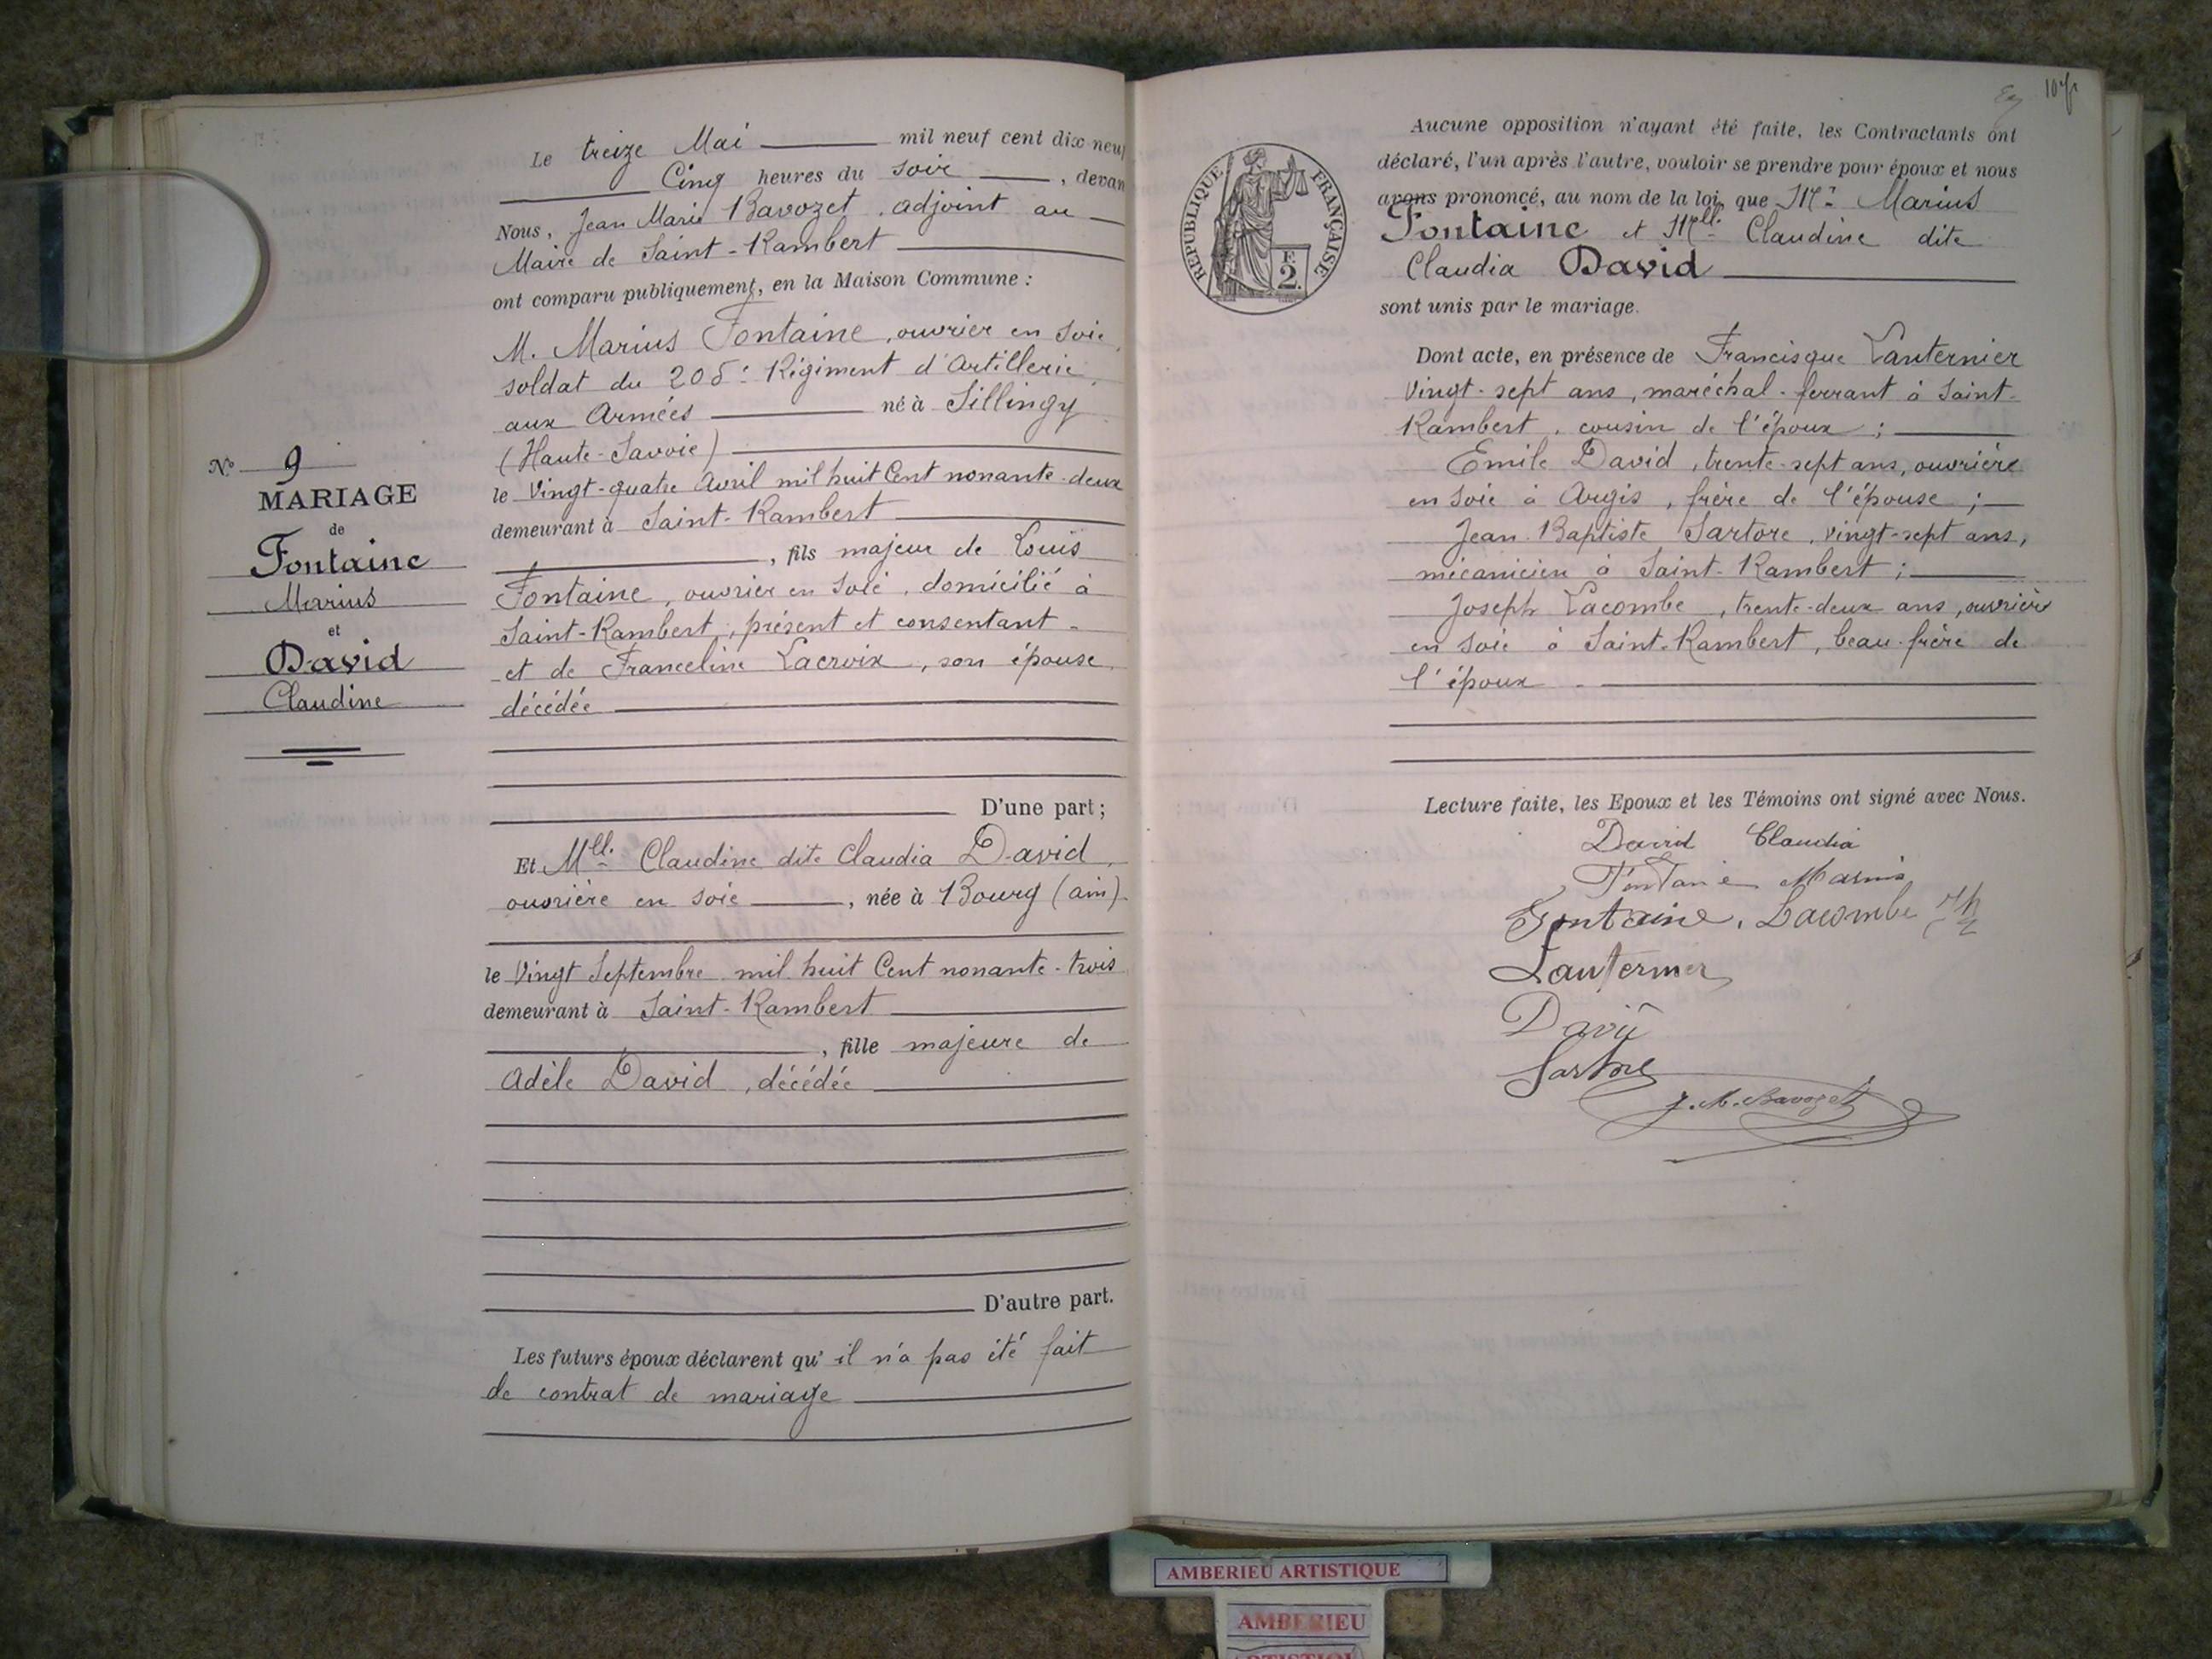 Le treize Mai mil neuf cent dix neuf
Cinq heures du soir, devan
Nous, Jean Marie Bavozet, adjoint au
Maire de Saint-Rambert
ont comparu publiquement, en la Maison Commune :
M. Marius Fontaine, ouvrier en soie,
soldat du 205e Régiment d'Artillerie,
aux Armées né à Sillingy
(Haute-Savoie)
le Vingt-quatre Avril mil huit Cent nonante-deux
demeurant à Saint-Rambert
, fils majeur de Louis
Fontaine, ouvrier en soie, domicilié à
Saint-Rambert, présent et consentant
et de Franceline Lacroix, son épouse,
décédée
D'une part;
Et Mlle Claudine dite Claudia David,
ouvrière en soie, née à Bourg (ain)
le Vingt Septembre mil huit Cent nonante-trois
demeurant à Saint-Rambert
, fille majeure de
Adèle David, décédée
D'autre part.
Les futurs époux déclarent qu'il n'a pas été fait
de contrat de mariage
No 9
MARIAGE
de
Fontaine
Marius
et
David
Claudine
107
REPUBLIQUE FRANÇAISE
F.
2.
Aucune opposition n'ayant été faite, les Contractants ont
déclaré, l'un après l'autre, vouloir se prendre pour époux et nous
avons prononcé, au nom de la loi, que Mr Marius
Fontaine et Mlle Claudine dite
Claudia David
sont unis par le mariage.
Dont acte, en présence de Francisque Lanternier
Vingt-sept ans, maréchal-ferrant à Saint-
Rambert, cousin de l'époux ;
Emile David, trente-sept ans, ouvrière
en soie à Argis, frère de l'épouse ;
Jean-Baptiste Sartore, vingt-sept ans,
mécanicien à Saint-Rambert ;
Joseph Lacombe, trente-deux ans, ouvrière
en soie à Saint-Rambert, beau-frère de
l'époux
Lecture faite, les Epoux et les Témoins ont signé avec Nous.
David Claudia
Fontaine Marius
Fontaine. Lacombe
Lanternier
David
Sartore
J. M. Bavozet
AMBERIEU ARTISTIQUE
AMBERIEU
ARTISTIQU